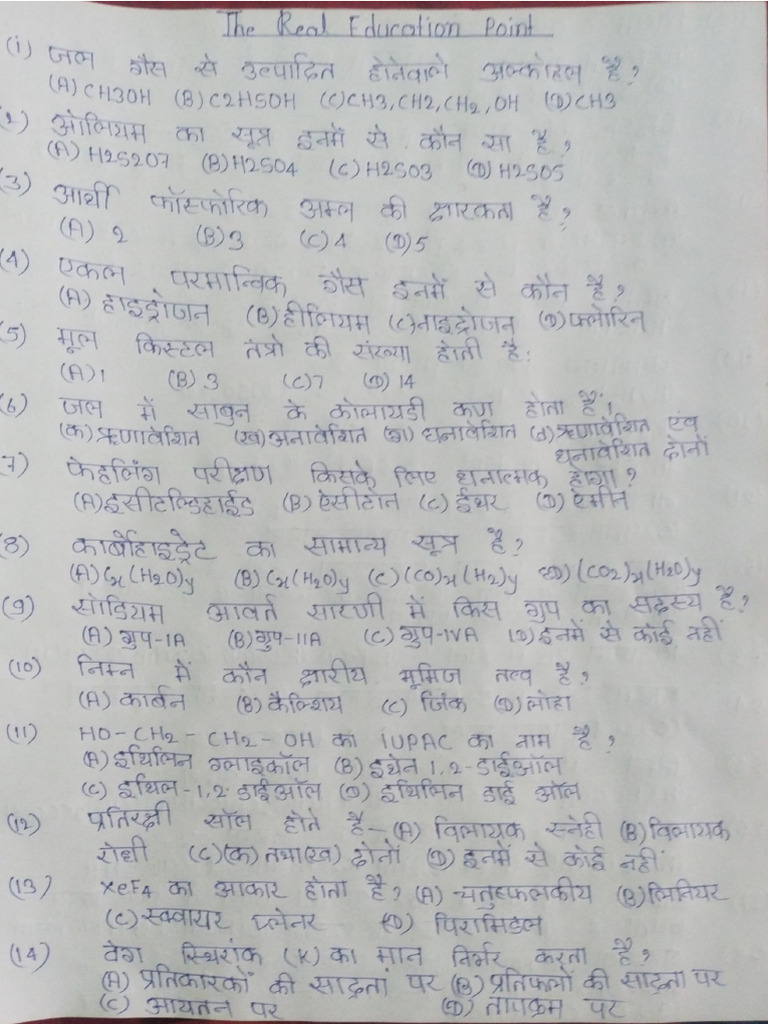 The Real Education Point
(i) जल गैस से उत्पादित होनेवाले अल्कोहल है?
(A) CH3OH (B) C2H5OH (C) CH3, CH2, CH2, OH (D) CH3
(2) ओलियम का सूत्र इनमें से कौन सा है?
(A) H2S2O7 (B) H2SO4 (C) H2SO3 (D) H2SO5
(3) आर्थो फॉस्फोरिक अम्ल की क्षारकता है?
(A) 2 (B) 3 (C) 4 (D) 5
(4) एकल परमान्विक गैस इनमें से कौन है?
(A) हाइड्रोजन (B) हीलियम (C) नाइट्रोजन (D) फ्लोरिन
(5) मूल किस्टल तंत्रो की संख्या होती है:
(A) 1 (B) 3 (C) 7 (D) 14
(6) जल में साबुन के कोलायडी कण होता हैं?
(क) ऋणावेशित (ख) अनावेशित (ग) धनावेशित (d) ऋणावेशित एंव
धनावेशित दोनों
(7) फेहलिंग परीक्षण किसके लिए धनात्मक होगा?
(A) इसीटल्डिहाईड (B) ऐसीटोन (C) ईथर (D) ऐमीन
(8) कार्बोहाइड्रेट का सामान्य सूत्र है?
(A) Cx(H2O)y (B) Cx(H2O)y (C) (CO)x(H2)y (D) (CO2)x(H2O)y
(9) सोडियम आवर्त सारणी में किस ग्रुप का सदस्य है?
(A) ग्रुप-IA (B) ग्रुप-IIA (C) ग्रुप-IVA (D) इनमें से कोई नहीं
(10) निम्न में कौन क्षारीय भूमिज तत्व है?
(A) कार्बन (B) कैल्शियम (C) जिंक (D) लोहा
(11) HO-CH2-CH2-OH का IUPAC का नाम है?
(A) इथिलिन ग्लाइकॉल (B) इथेन 1,2-डाईऑल
(C) इथिल-1,2-डाईऑल (D) इथिलिन डाई ऑल
(12) प्रतिरक्षी सॉल होते है- (A) विलायक स्नेही (B) विलायक
रोधी (C) (क) तथा (ख) दोनों (D) इनमें से कोई नहीं
(13) XeF4 का आकार होता है? (A) चतुष्फलकीय (B) लिनियर
(C) स्क्वायर प्लेनर (D) पिरामिडल
(14) वेग स्थिरांक (K) का मान निर्भर करता है?
(A) प्रतिकारकों की सांद्रता पर (B) प्रतिफलों की सांद्रता पर
(C) आयतन पर (D) तापक्रम पर